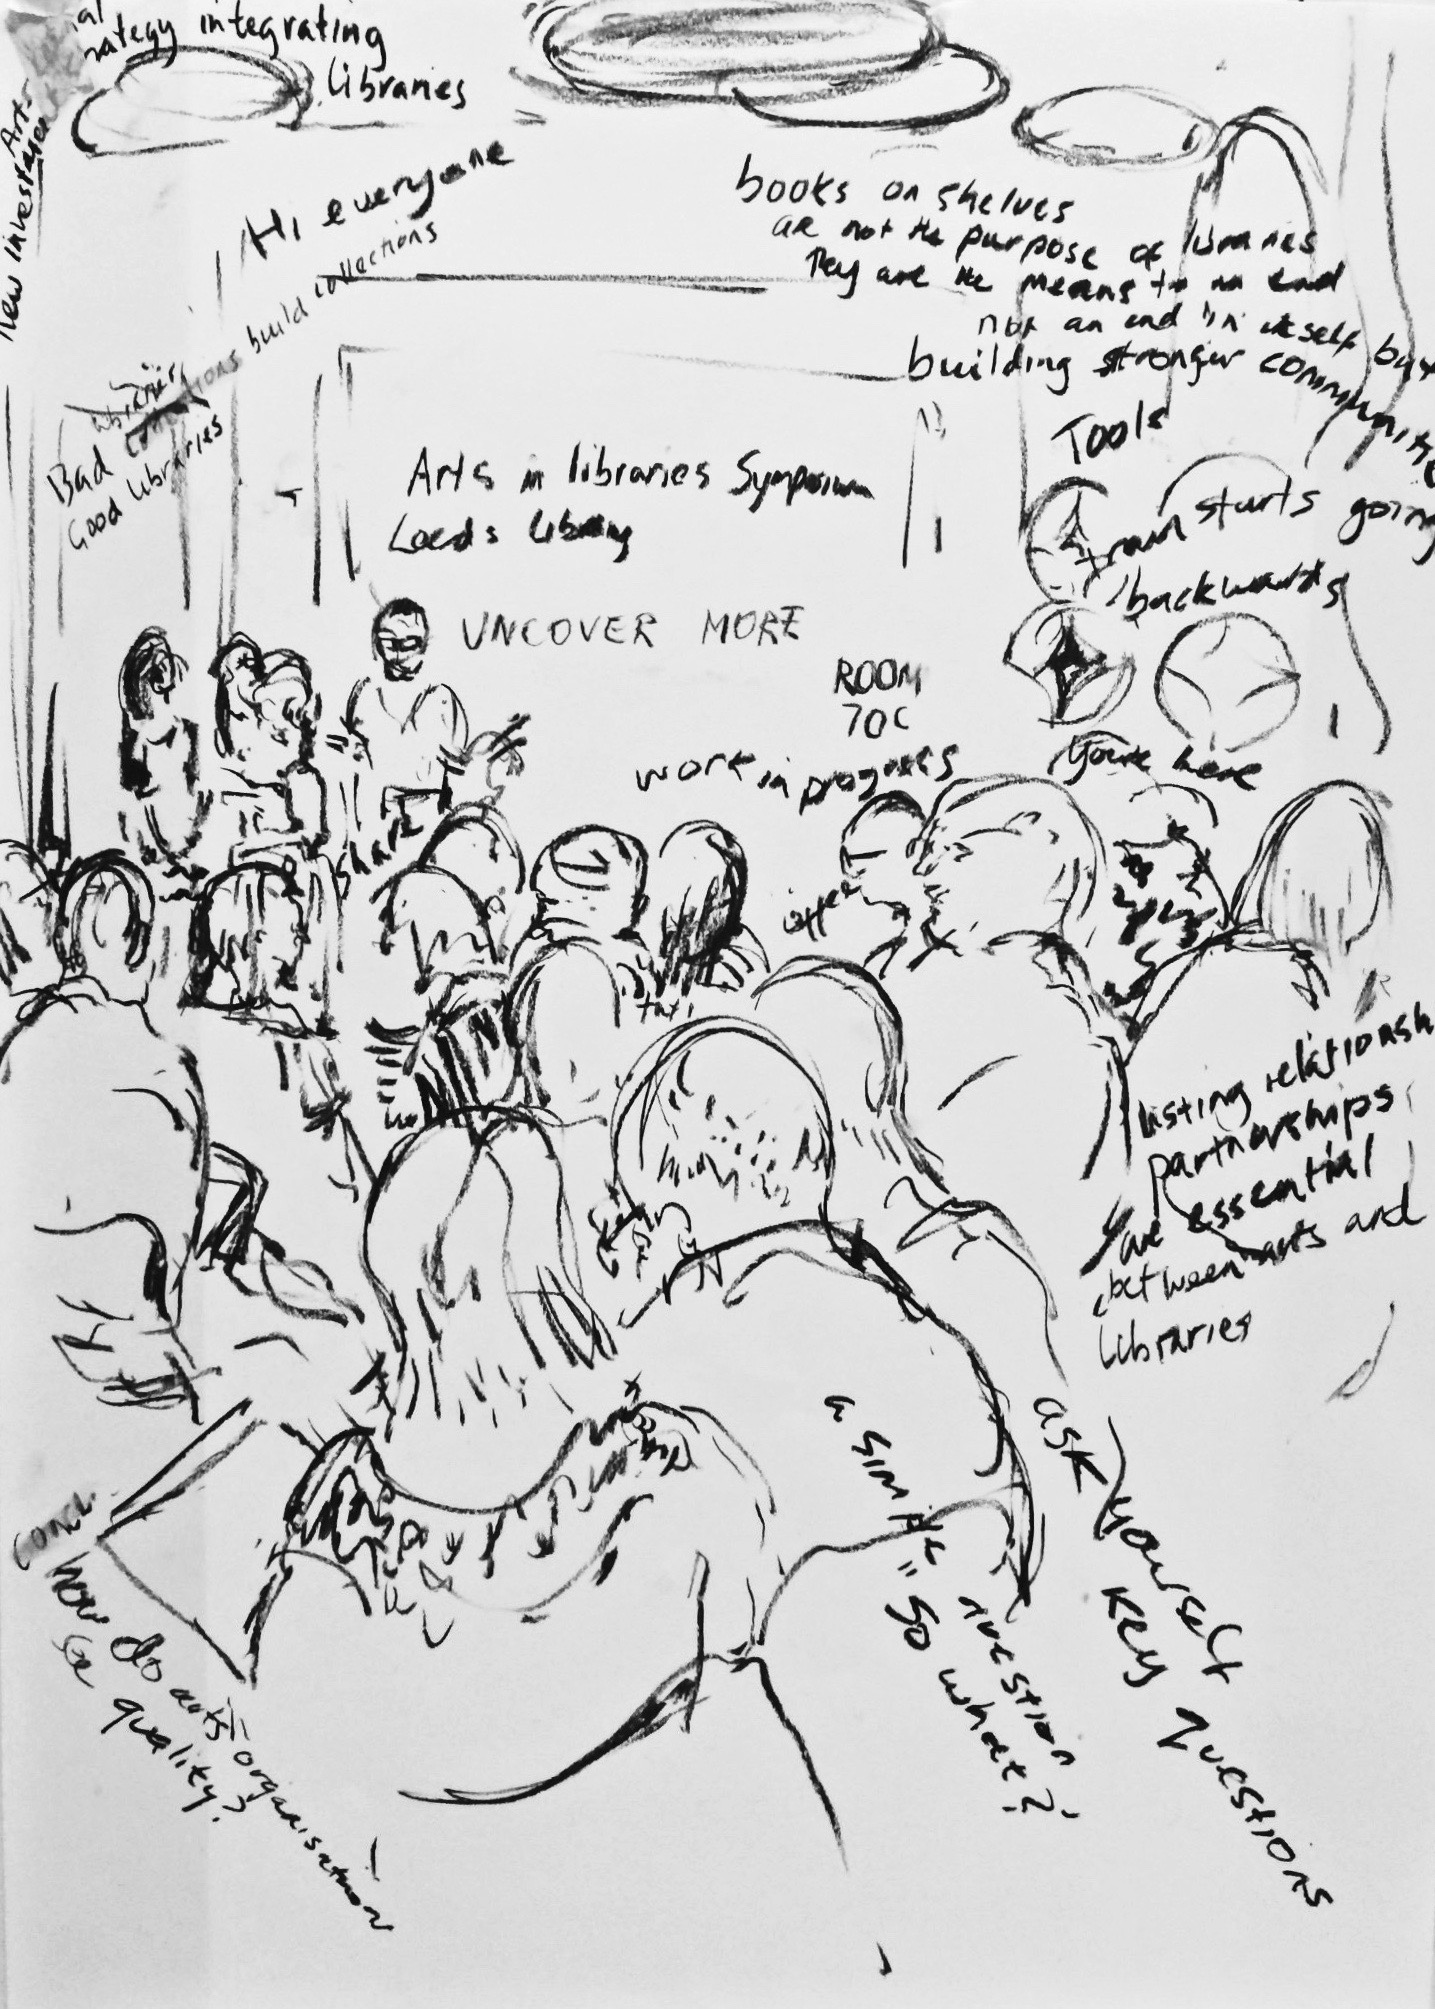 integrating
libraries
New investment
Hi everyone
build collections
Bad
Good libraries
books on shelves
are not the purpose of libraries
They are the means to an end
not an end in itself but
building stronger communities
Tools
train starts going
backwards
Arts in libraries Symposium
Leeds library
UNCOVER MORE
ROOM
700
work in progress
You're here
share
offer
taxi
listing relationsh
partnerships
are essential
between arts and
libraries
ask yourself
key questions
a simple question
"So what?"
how do arts organisation
be quality?